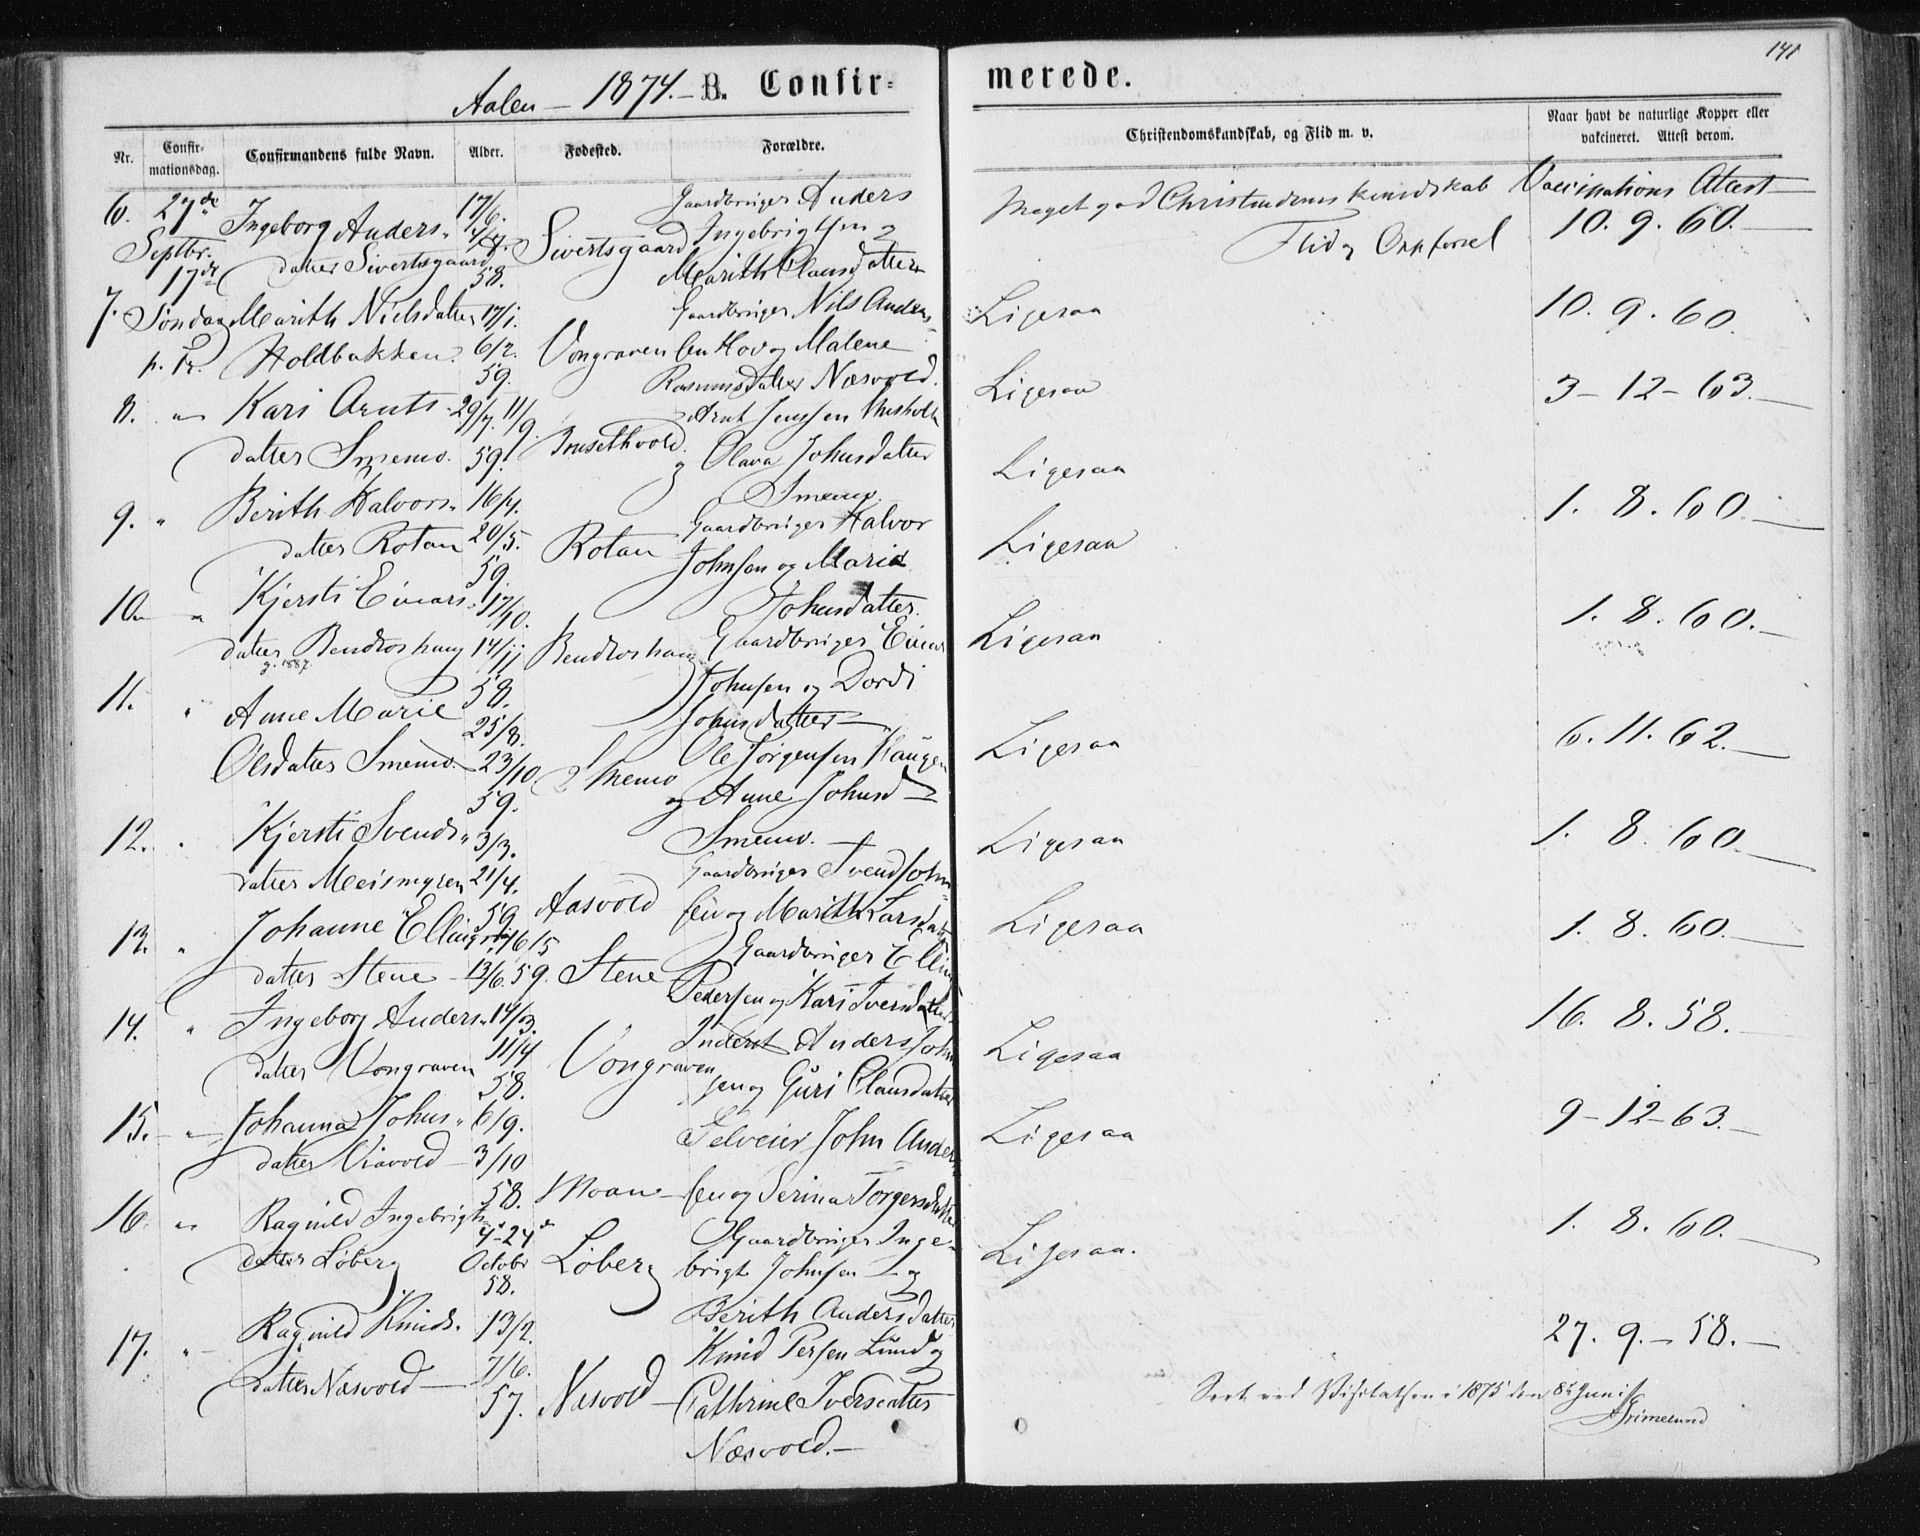 141
Aalen — 1874. — B. Confir-
merede.
Nr.
Confir-
mationsdag.
Confirmandens fulde Navn.
Alder.
Fødested.
Forældre.
Christendomskundskab, og Flid m. v.
Naar havt de naturlige Kopper eller
vakcineret. Attest derom.
6. 27de Septbr. 17de
Ingeborg Anders-
datter Sivertsgaard
17/6. 58.
Sivertsgaard
Gaardbruger Anders
Ingebrigtsen &
Marith Clausdatter
Meget god Christendoms kundskab
Flid og Opførsel
Vaccinations Attest
10. 9. 60.
7. Søndag p. Tr.
Marith Nielsdatter
Holdbakken.
17/1. 6/2. 59.
Vongraven
Gaardbruger Nils Anders-
sen Hov og Malene
Rasmusdatter Næsvold.
Ligesaa
10. 9. 60.
8. "
Kari Arnts-
datter Smemo.
29/7. 11/9. 59.
Bousethvold.
Arnt Jenssen
og Olava Johnsdatter
Smemo.
Ligesaa
3-12-63.
9. "
Berith Halvors-
datter Rotan
16/4. 20/5. 59.
Rotan
Gaardbruger Halvor
Johnsen og Marie
Johnsdatter.
Ligesaa
Ligesaa
1. 8. 60.
10. "
Kjersti Einars-
datter Bendoshaug
g. 1887.
17/10. 14/11 58.
Bendoshaug
Gaardbruger Einar
Johnsen og Dordi
Johnsdatter
Ligesaa
1. 8. 60.
11. "
Anne Marie
Olsdatter Smemo.
25/8. 23/10 59.
Smemo
Ole Jørgensen Haugen
og Anne Johnsd
Smemo.
Ligesaa
6. 11. 62.
12. "
Kjersti Svends-
datter Meismyren
3/3. 21/4. 59
Aasvold
Gaardbruger Svend John-
sen og Marith Larsdatter
Ligesaa
1. 8. 60.
13. "
Johanne Ellings-
datter Stene
16/5 13/6. 59.
Stene
Gaardbruger Elling
Pedersen og Kari Iversdatter
Ligesaa
1. 8. 60.
14. "
Ingeborg Anders-
datter Vongraven
14/3. 11/4 58.
Vongraven
Inderst Anders John
sen og Guri Clausdatter
Ligesaa
16. 8. 58.
15. "
Johanna Johns-
datter Viavold
6/9. 3/10 58.
Moan
Selveier John Anders
sen og Serina Torgersdatter
Ligesaa
9-12-63.
16. "
Ragnild Ingebrigts
datter Løberg
4-24de
Octobr
58.
Løberg
Gaardbruger Inge-
brigt Johnsen og
Berith Andersdatter
Ligesaa.
1. 8. 60.
17. "
Ragnild Knuds-
datter Næsvold
13/2. 7/6. 57.
Næsvold
Knud Persen Lund og
Cathrine Iversdatter
Næsvold.
27. 9. 58.
Seet ved Visitatsen i 1875 den 8de Juni
Grimelund